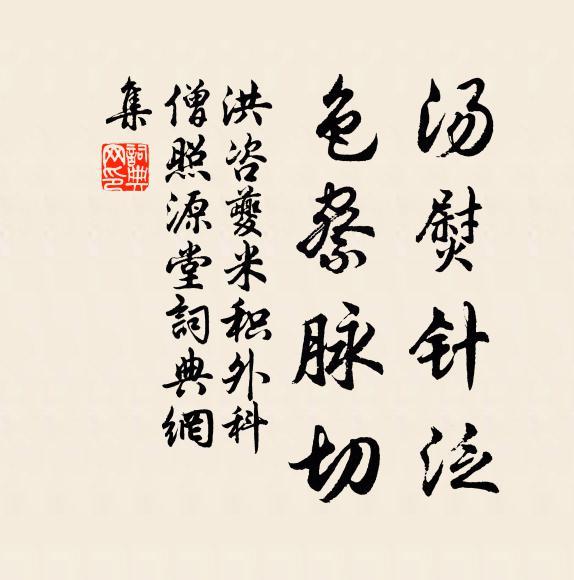 汤熨针泛
色察脉切
洪咨夔米积外科
僧照源堂詞典網
集
詞典网印